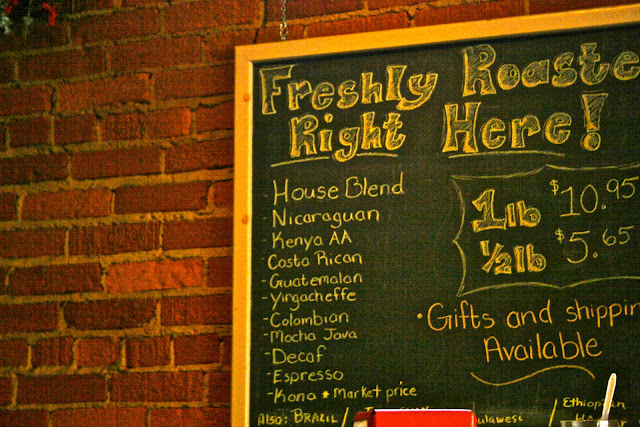 Freshly Roaste
Right Here!
- House Blend
- Nicaraguan
- Kenya AA
- Costa Rican
- Guatemalan
- Yirgacheffe
- Colombian
- Mocha Java
- Decaf
- Espresso
- Kona * Market price
Also: Brazil /
ulawesi / Ethiopian
1lb $10.95
½lb $5.65
• Gifts and shippin
Available